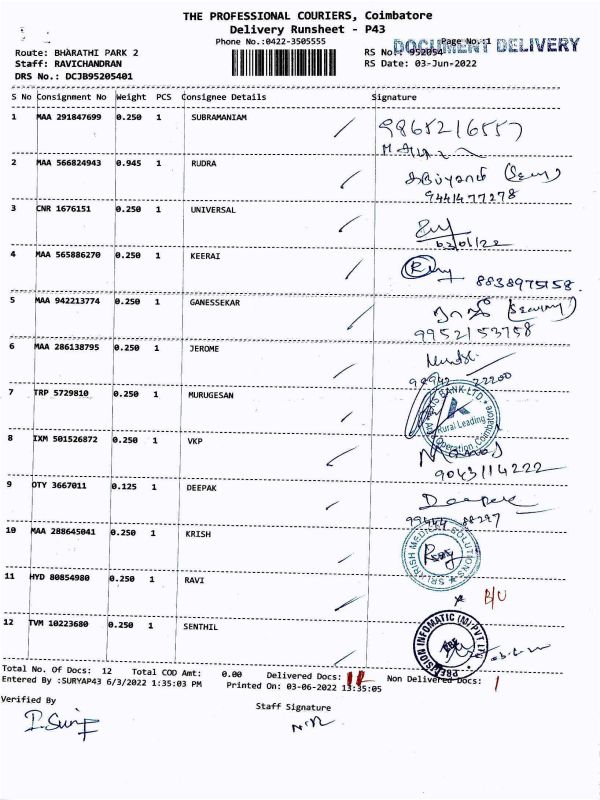 THE PROFESSIONAL COURIERS, Coimbatore
Delivery Runsheet - P43
Phone No.:0422-3505555
Page No.:1
DOCUMENT DELIVERY
Route: BHARATHI PARK 2
RS No.: 952054
Staff: RAVICHANDRAN
RS Date: 03-Jun-2022
DRS No.: DCJB95205401
S No Consignment No Weight PCS Consignee Details Signature
1 MAA 291847699 0.250 1 SUBRAMANIAM
9865216557
2 MAA 566824943 0.945 1 RUDRA
9441477278
3 CNR 1676151 0.250 1 UNIVERSAL
4 MAA 565886270 0.250 1 KEERAI
8838975158
5 MAA 942213774 0.250 1 GANESSEKAR
9952153758
6 MAA 286138795 0.250 1 JEROME
7 TRP 5729810 0.250 1 MURUGESAN
BANK LTD.
Rural Leading
Coimbatore
8 IXM 501526872 0.250 1 VKP
9043114222
9 OTY 3667011 0.125 1 DEEPAK
Deepak
10 MAA 288645041 0.250 1 KRISH
SRI KRISH MEDICAL SOLUTIONS
11 HYD 80854980 0.250 1 RAVI
B/U
12 TVM 10223680 0.250 1 SENTHIL
PRECISION INFOMATIC (M) PVT LTD
CBE
Total No. Of Docs: 12 Total COD Amt: 0.00 Delivered Docs: Non Delivered Docs: 1
Entered By :SURYAP43 6/3/2022 1:35:03 PM Printed On: 03-06-2022 13:35:05
Verified By
Staff Signature